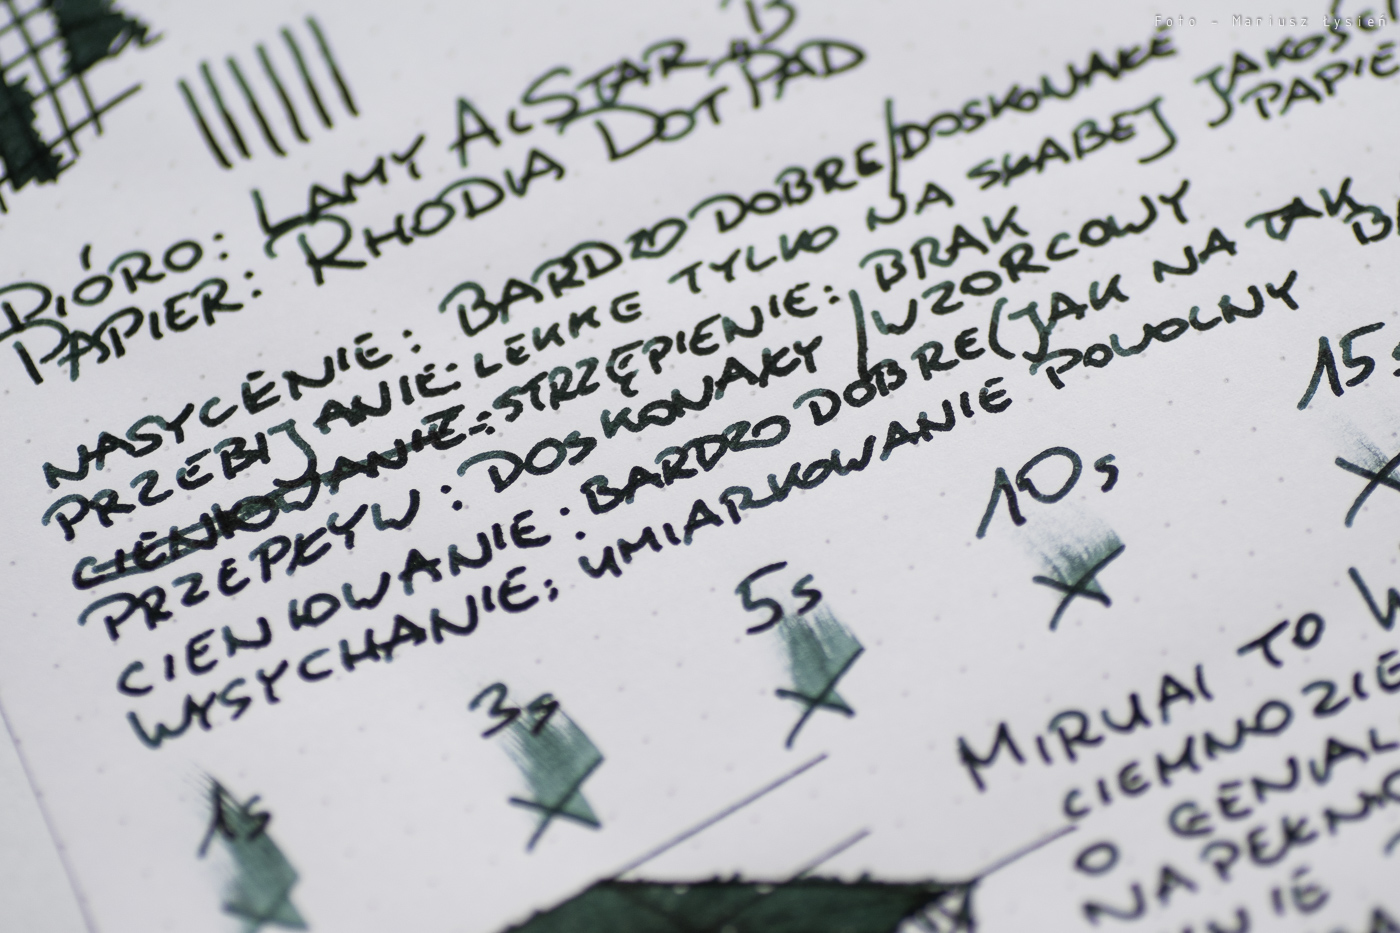 Foto - Mariusz Łysień
PIÓRO: LAMY ALSTAR, "B"
PAPIER: RHODIA DOT PAD
NASYCENIE: BARDZO DOBRE/DOSKONAŁE
PRZEBIJANIE: LEKKE TYLKO NA SŁABEJ JAKOŚCI
PAPIE
CIENIOWANIE: STRZĘPIENIE: BRAK
PRZEPŁYW: DOSKONAŁY/WZORCOWY
CIENIOWANIE: BARDZO DOBRE (JAK NA TAK
WYSYCHANIE: UMIARKOWANIE POWOLNY
1s 3s 5s 10s 15s
MIRUAI TO
CIEMNOZIE
O GENIAL
NAPEŁNIO